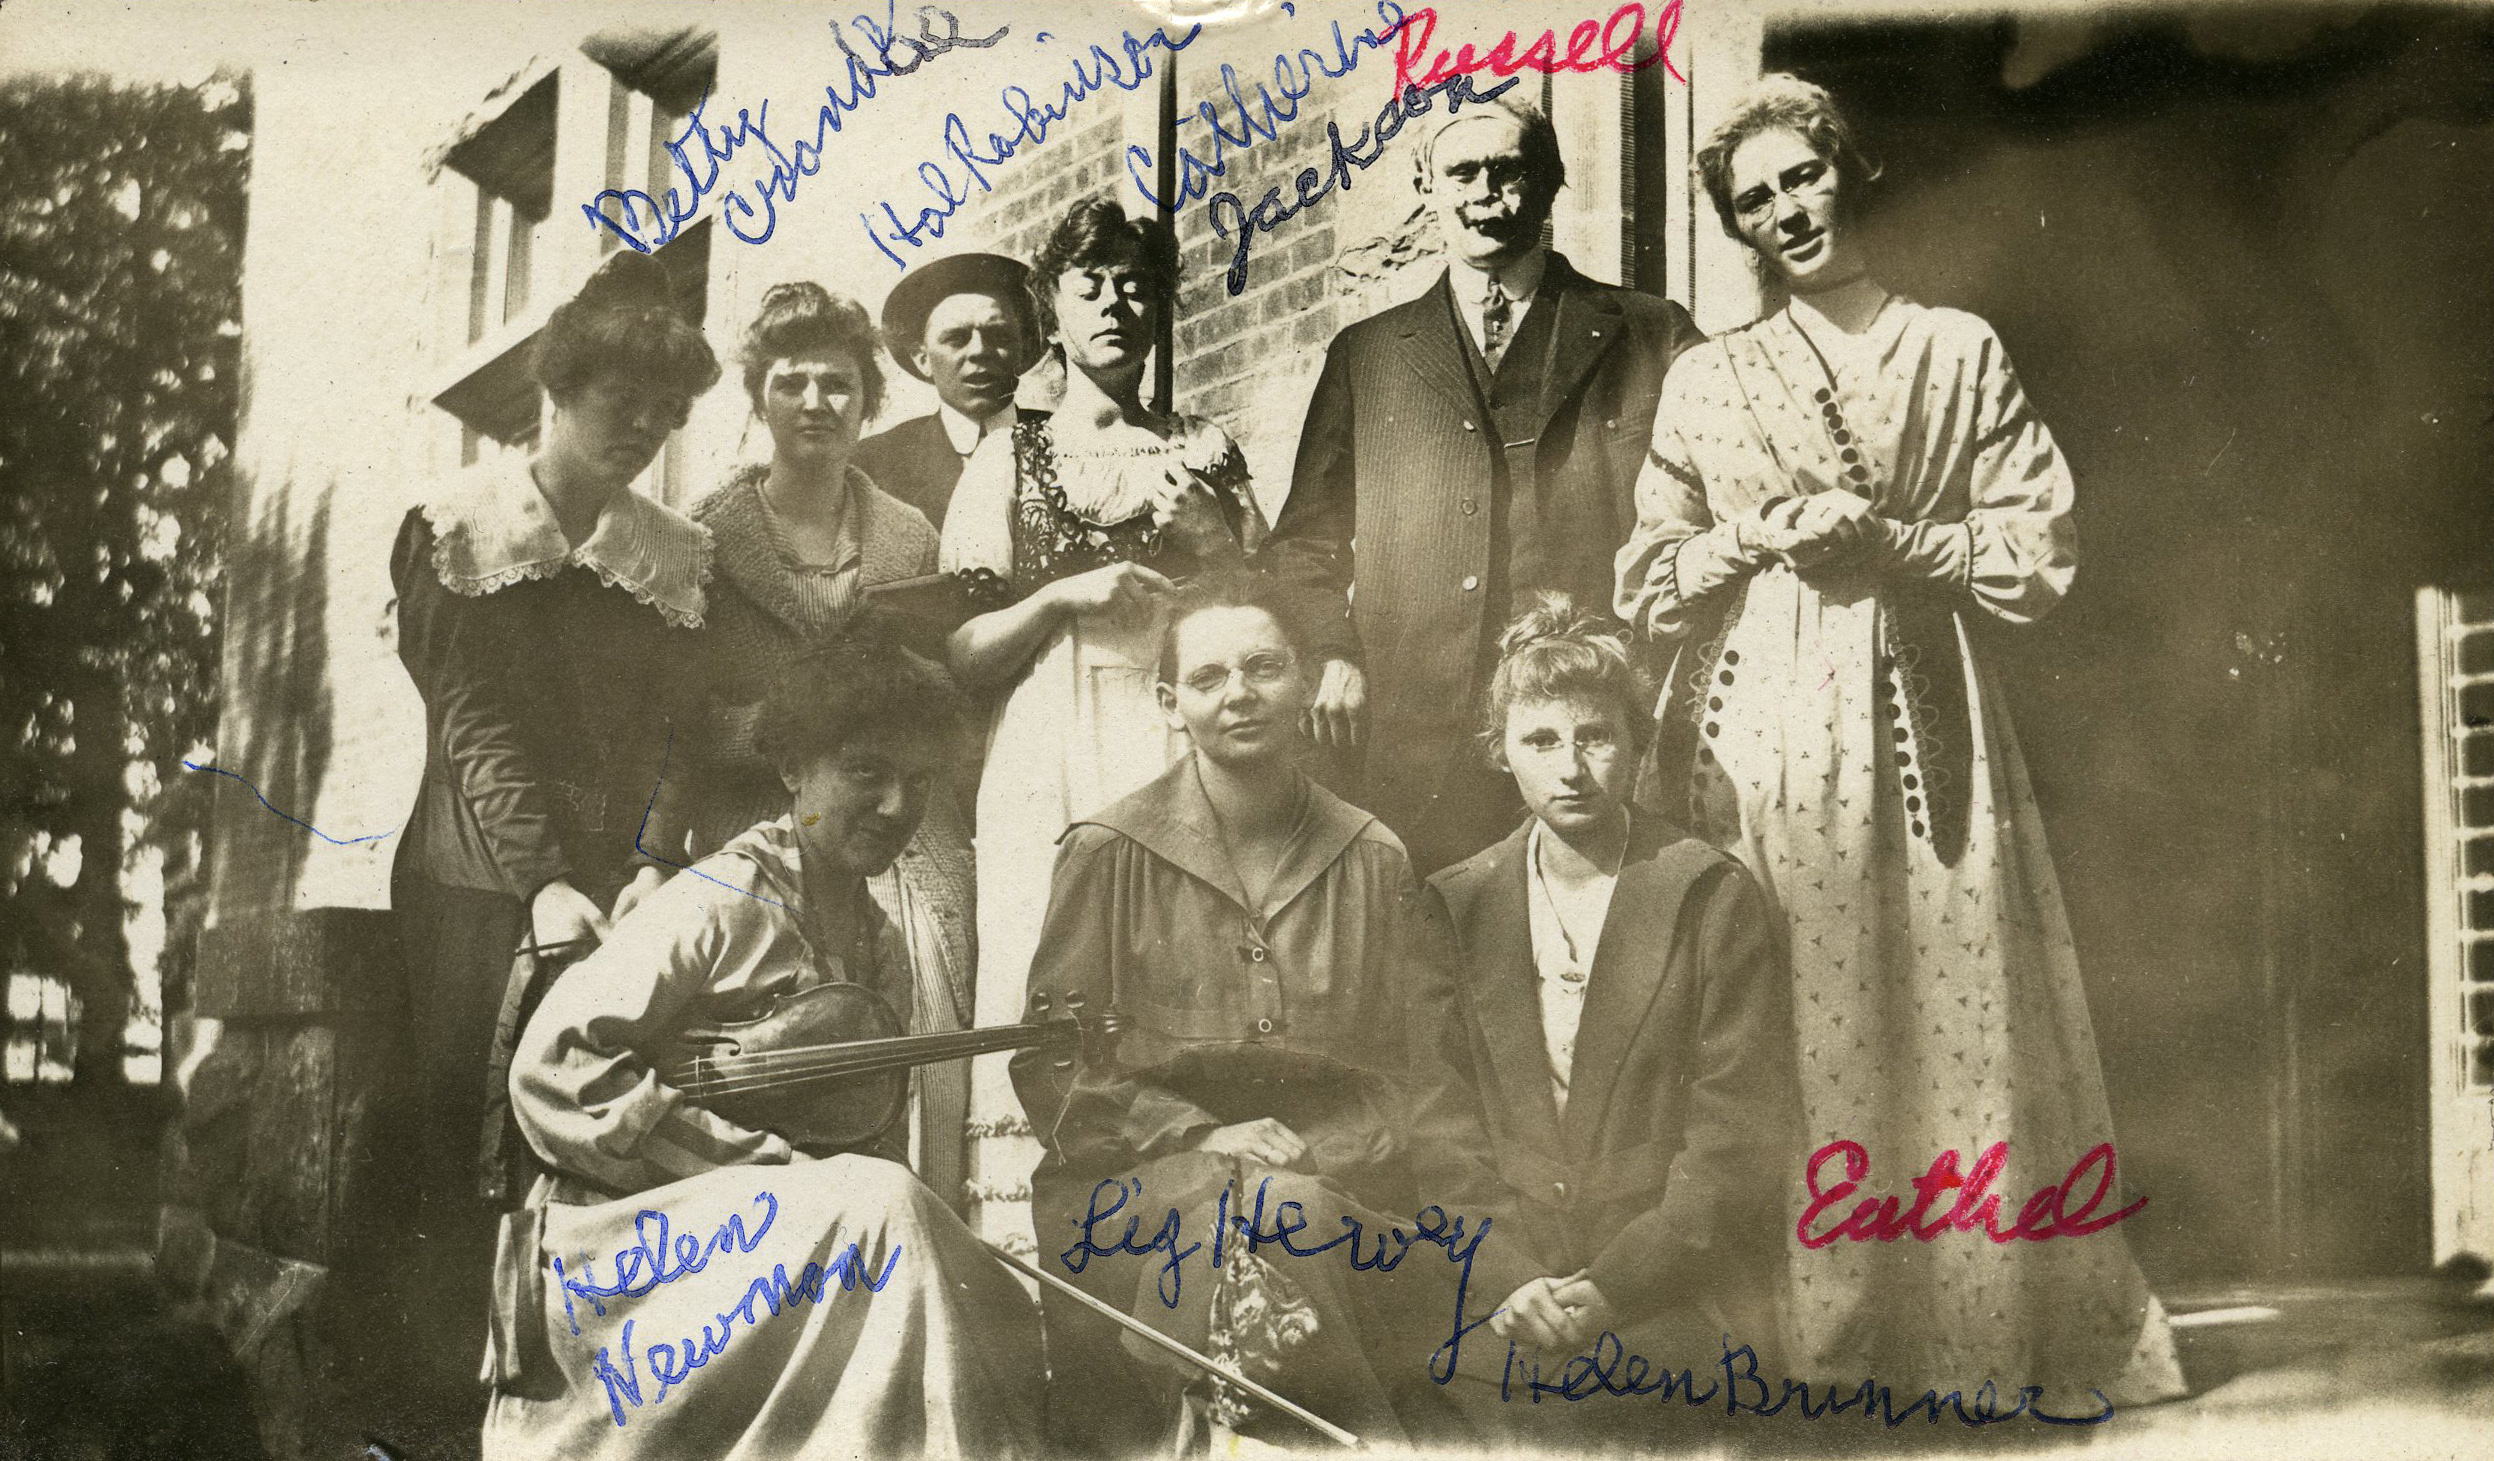 Betty
Hal Robinson
Catherine
Jackson
Russell
Helen
Newmon
Lig Hervey
Helen Brunner
Eathel